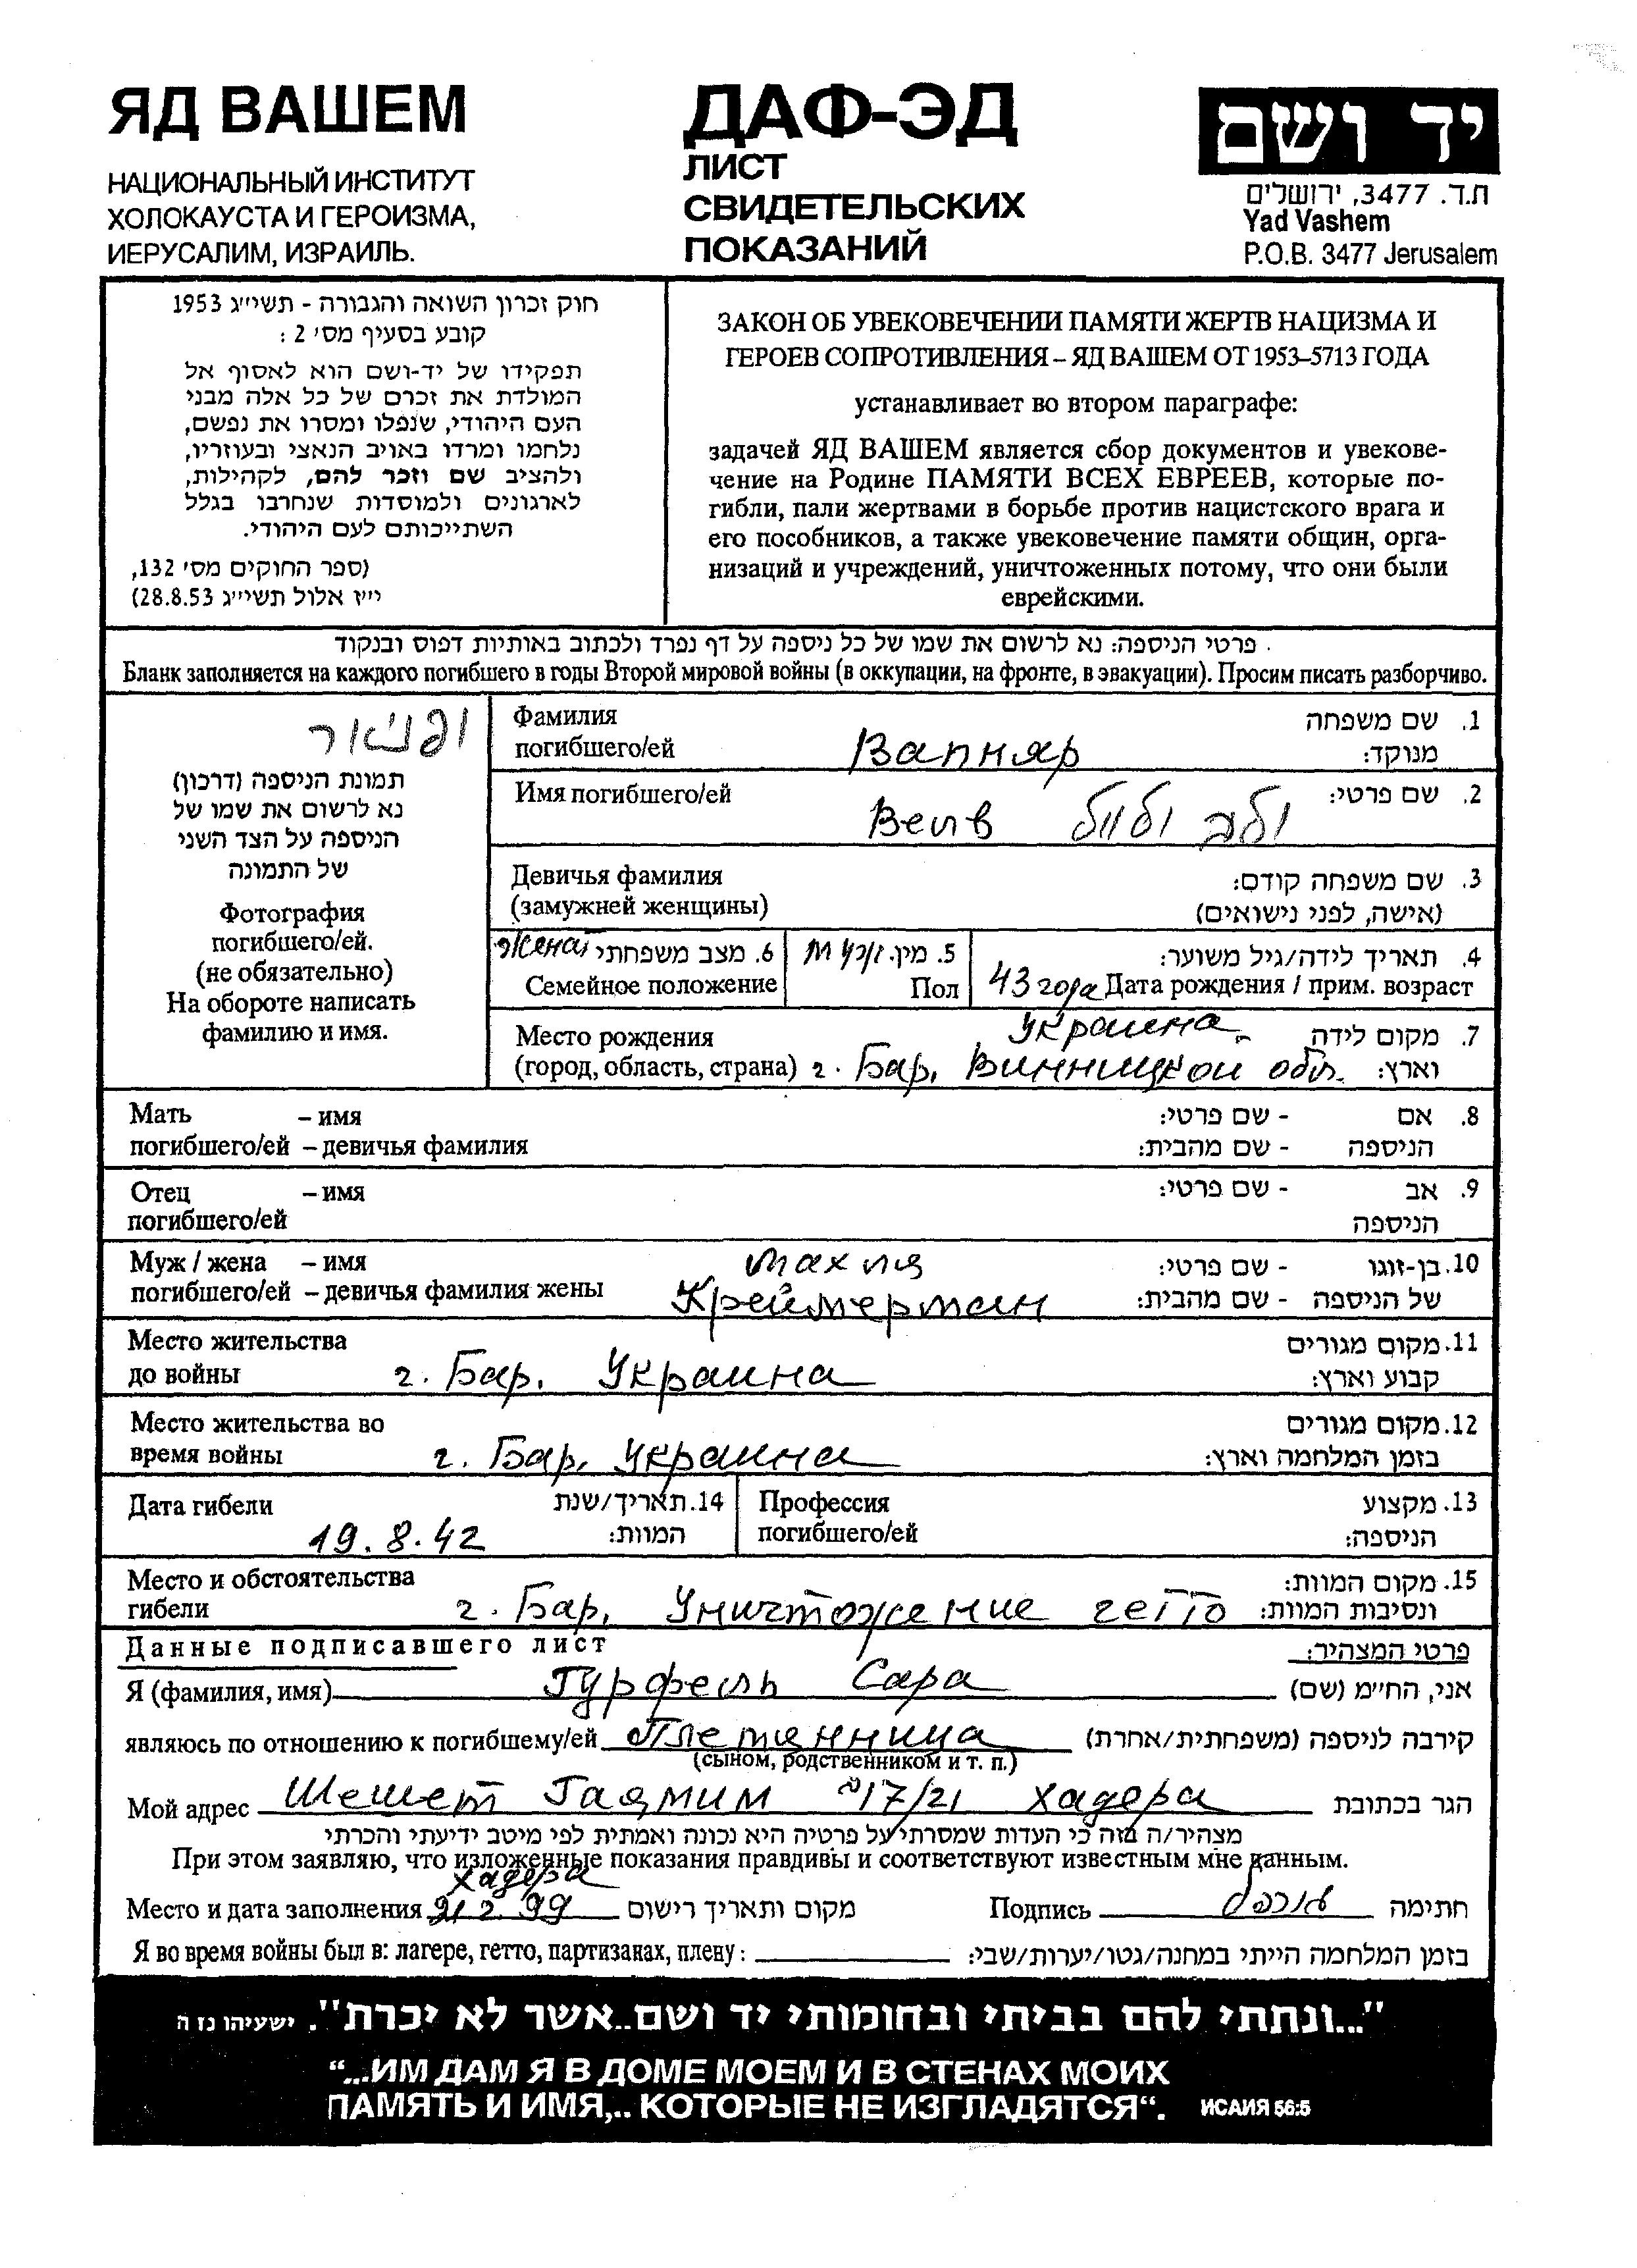 ЯД ВАШЕМ
НАЦИОНАЛЬНЫЙ ИНСТИТУТ
ХОЛОКАУСТА И ГЕРОИЗМА,
ИЕРУСАЛИМ, ИЗРАИЛЬ.
ДАФ-ЭД
ЛИСТ
СВИДЕТЕЛЬСКИХ
ПОКАЗАНИЙ
יד ושם
ת.ד. 3477, ירושלים
Yad Vashem
P.O.B. 3477 Jerusalem
חוק זכרון השואה והגבורה - תשי״ג 1953
קובע בסעיף מס׳ 2 :
תפקידו של יד-ושם הוא לאסוף אל
המולדת את זכרם של כל אלה מבני
העם היהודי, שנפלו ומסרו את נפשם,
נלחמו ומרדו באויב הנאצי ובעוזריו,
ולהציב שם וזכר להם, לקהילות,
לארגונים ולמוסדות שנחרבו בגלל
השתייכותם לעם היהודי.
(ספר החוקים מס׳ 132,
י״ז אלול תשי״ג 28.8.53)
ЗАКОН ОБ УВЕКОВЕЧЕНИИ ПАМЯТИ ЖЕРТВ НАЦИЗМА И
ГЕРОЕВ СОПРОТИВЛЕНИЯ – ЯД ВАШЕМ ОТ 1953–5713 ГОДА
устанавливает во втором параграфе:
задачей ЯД ВАШЕМ является сбор документов и увекове-
чение на Родине ПАМЯТИ ВСЕХ ЕВРЕЕВ, которые по-
гибли, пали жертвами в борьбе против нацистского врага и
его пособников, а также увековечение памяти общин, орга-
низаций и учреждений, уничтоженных потому, что они были
еврейскими.
פרטי הניספה: נא לרשום את שמו של כל ניספה על דף נפרד ולכתוב באותיות דפוס ובנקוד
Бланк заполняется на каждого погибшего в годы Второй мировой войны (в оккупации, на фронте, в эвакуации). Просим писать разборчиво.
ופניאר
תמונת הניספה (דרכון)
נא לרשום את שמו של
הניספה על הצד השני
של התמונה
Фотография
погибшего/ей.
(не обязательно)
На обороте написать
фамилию и имя.
Фамилия 1. שם משפחה
погибшего/ей Вапняр מנוקד:
Имя погибшего/ей 2. שם פרטי:
Велв ולב ולוול
Девичья фамилия 3. שם משפחה קודם:
(замужней женщины) (אישה, לפני נישואים)
Женат 6. מצב משפחתי 5. מין. זכר муж 4. תאריך לידה/גיל משוער:
Семейное положение Пол 43 года Дата рождения / прим. возраст
Место рождения Украина 7. מקום לידה
(город, область, страна) г. Бар, Винницкой обл. וארץ:
Мать – имя 8. אם - שם פרטי:
погибшего/ей – девичья фамилия הניספה - שם מהבית:
Отец – имя 9. אב - שם פרטי:
погибшего/ей הניספה
Муж / жена – имя Махля 10. בן-זוגו - שם פרטי:
погибшего/ей – девичья фамилия жены Креймерман של הניספה - שם מהבית:
Место жительства 11. מקום מגורים
до войны г. Бар, Украина קבוע וארץ:
Место жительства во 12. מקום מגורים
время войны г. Бар, Украина בזמן המלחמה וארץ:
Дата гибели 14. תאריך/שנת Профессия 13. מקצוע
19.8.42 המוות: погибшего/ей הניספה:
Место и обстоятельства 15. מקום המוות:
гибели г. Бар, Уничтожение гетто ונסיבות המוות:
Данные подписавшего лист פרטי המצהיר:
Я (фамилия, имя) Гурфель Сара אני, החי״מ (שם)
являюсь по отношению к погибшему/ей Племянница קירבה לניספה (משפחתית/אחרת)
(сыном, родственником и т. п.)
Мой адрес Шешет Гаямим №17/21 Хадера הגר בכתובת
מצהיר/ה בזה כי העדות שמסרתי על פרטיה היא נכונה ואמתית לפי מיטב ידיעתי והכרתי
При этом заявляю, что изложенные показания правдивы и соответствуют известным мне данным.
Хадера
Место и дата заполнения 2.99 מקום ותאריך רישום Подпись חתימה
Я во время войны был в: лагере, гетто, партизанах, плену: בזמן המלחמה הייתי במחנה/גטו/יערות/שבי:
"...ונתתי להם בביתי ובחומותי יד ושם..אשר לא יכרת". ישעיהו נז ה
“...ИМ ДАМ Я В ДОМЕ МОЕМ И В СТЕНАХ МОИХ
ПАМЯТЬ И ИМЯ,.. КОТОРЫЕ НЕ ИЗГЛАДЯТСЯ“. ИСАИЯ 56:5